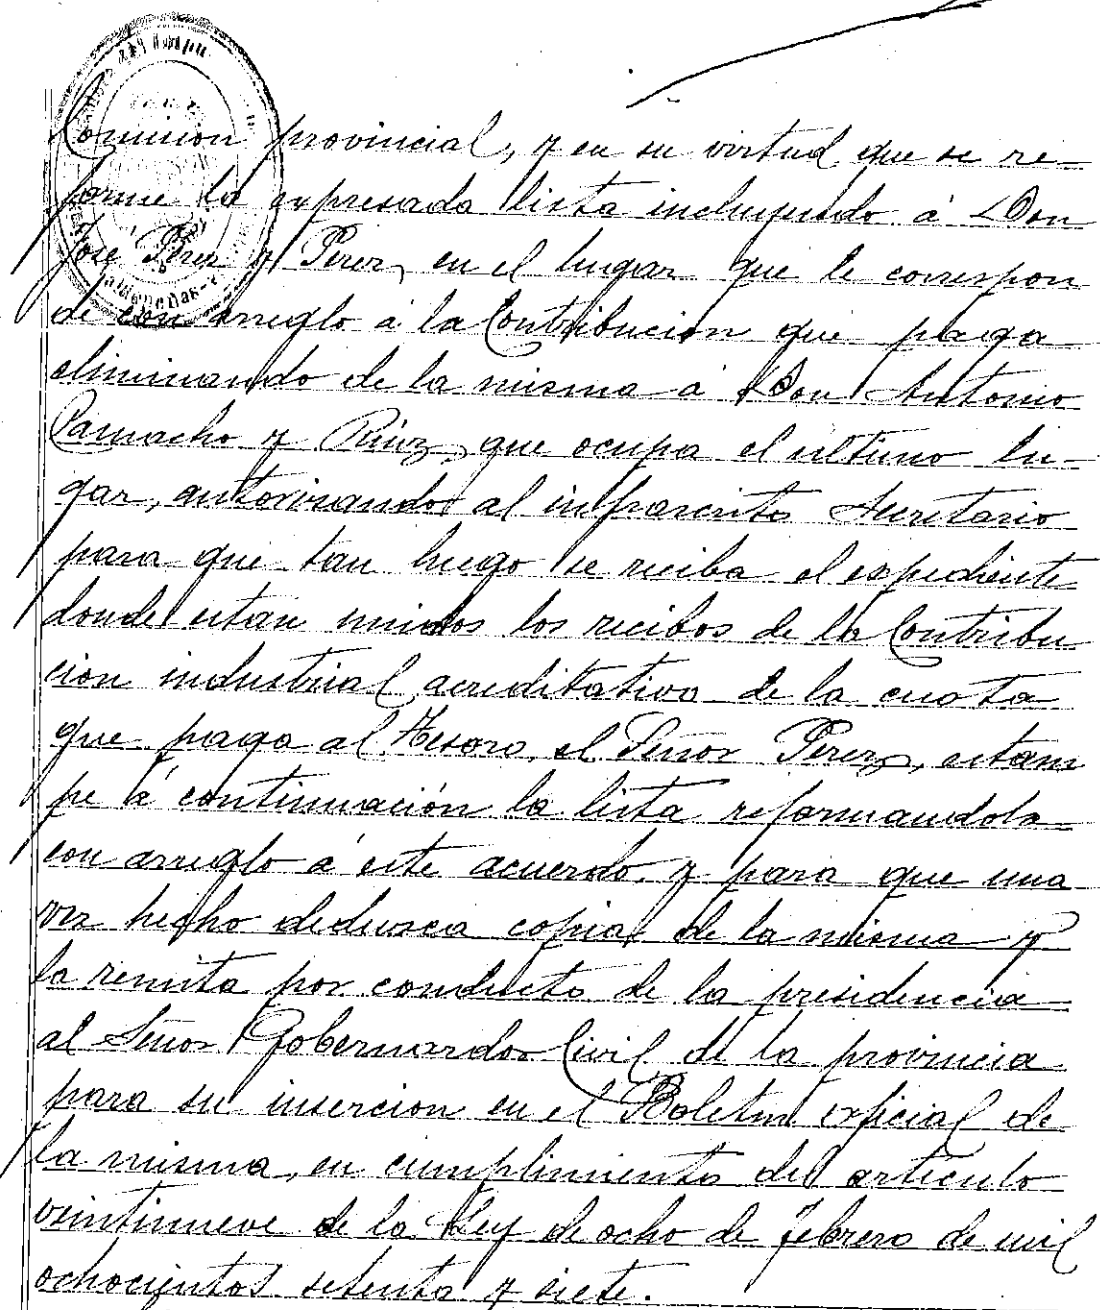 Comision provincial, y en su virtud que se re-
forme la expresada lista incluyendo á Don
José Perez y Perez, en el lugar que le correspon
de con arreglo á la Contribucion que paga
eliminando de la misma á Don Antonio
Camacho y Ruiz, que ocupa el ultimo lu-
gar, autorisando al infrascrito Secretario
para que tan luego se reciba el expediente
donde estan unidos los recibos de la Contribu
cion industrial acreditativo de la cuota
que paga al Tesoro, el Señor Perez, estam
pe á continuación la lista reformandola
con arreglo á este acuerdo, y para que una
vez hecho deduzca copia de la misma y
la remita por conducto de la presidencia
al Señor Gobernardor Civil de la provincia
para su insercion en el Boletin oficial de
la misma, en cumplimiento del articulo
veintinueve de la Ley de ocho de febrero de mil
ochocientos setenta y siete.